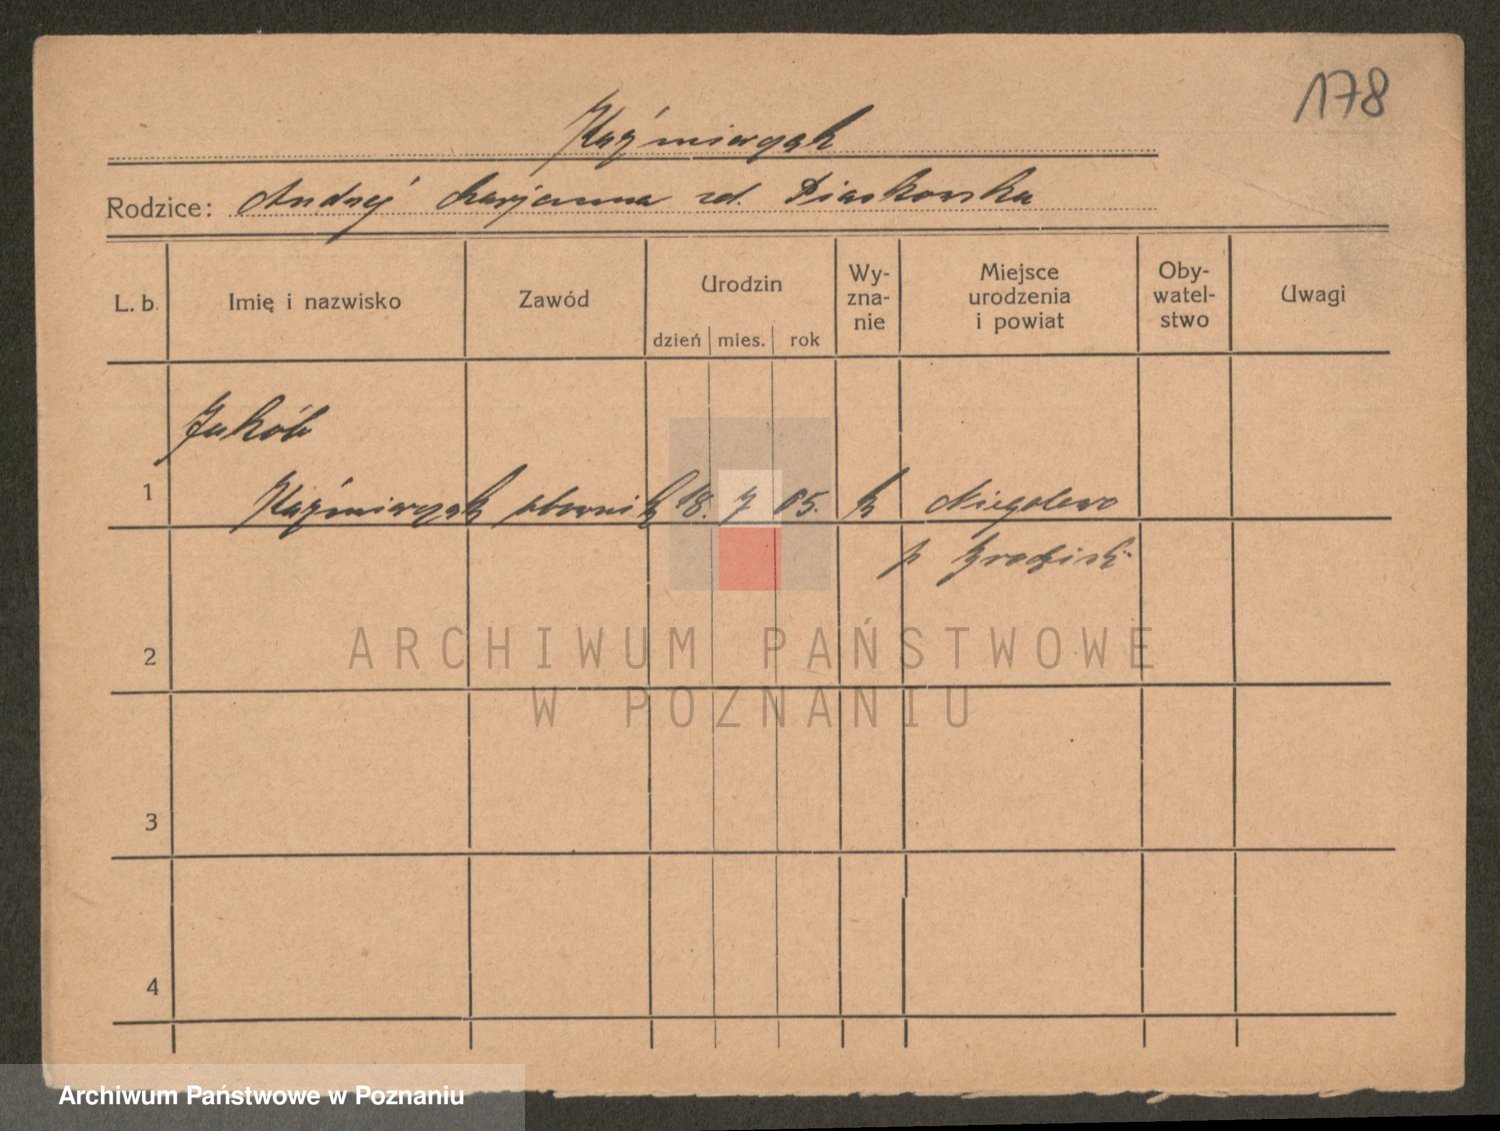 178
Kaźmierczak
Rodzice: Andrzej Marjanna zd. Piaskowska
L. b. Imię i nazwisko Zawód Urodzin Wy-zna-nie Miejsce urodzenia i powiat Oby-watel-stwo Uwagi
dzień mies. rok
Jakób
1 Kaźmierczak obornik 18. 7 05. k Niegolewo
p Grodzisk
2
3
4
ARCHIWUM PAŃSTWOWE
W POZNANIU
Archiwum Państwowe w Poznaniu